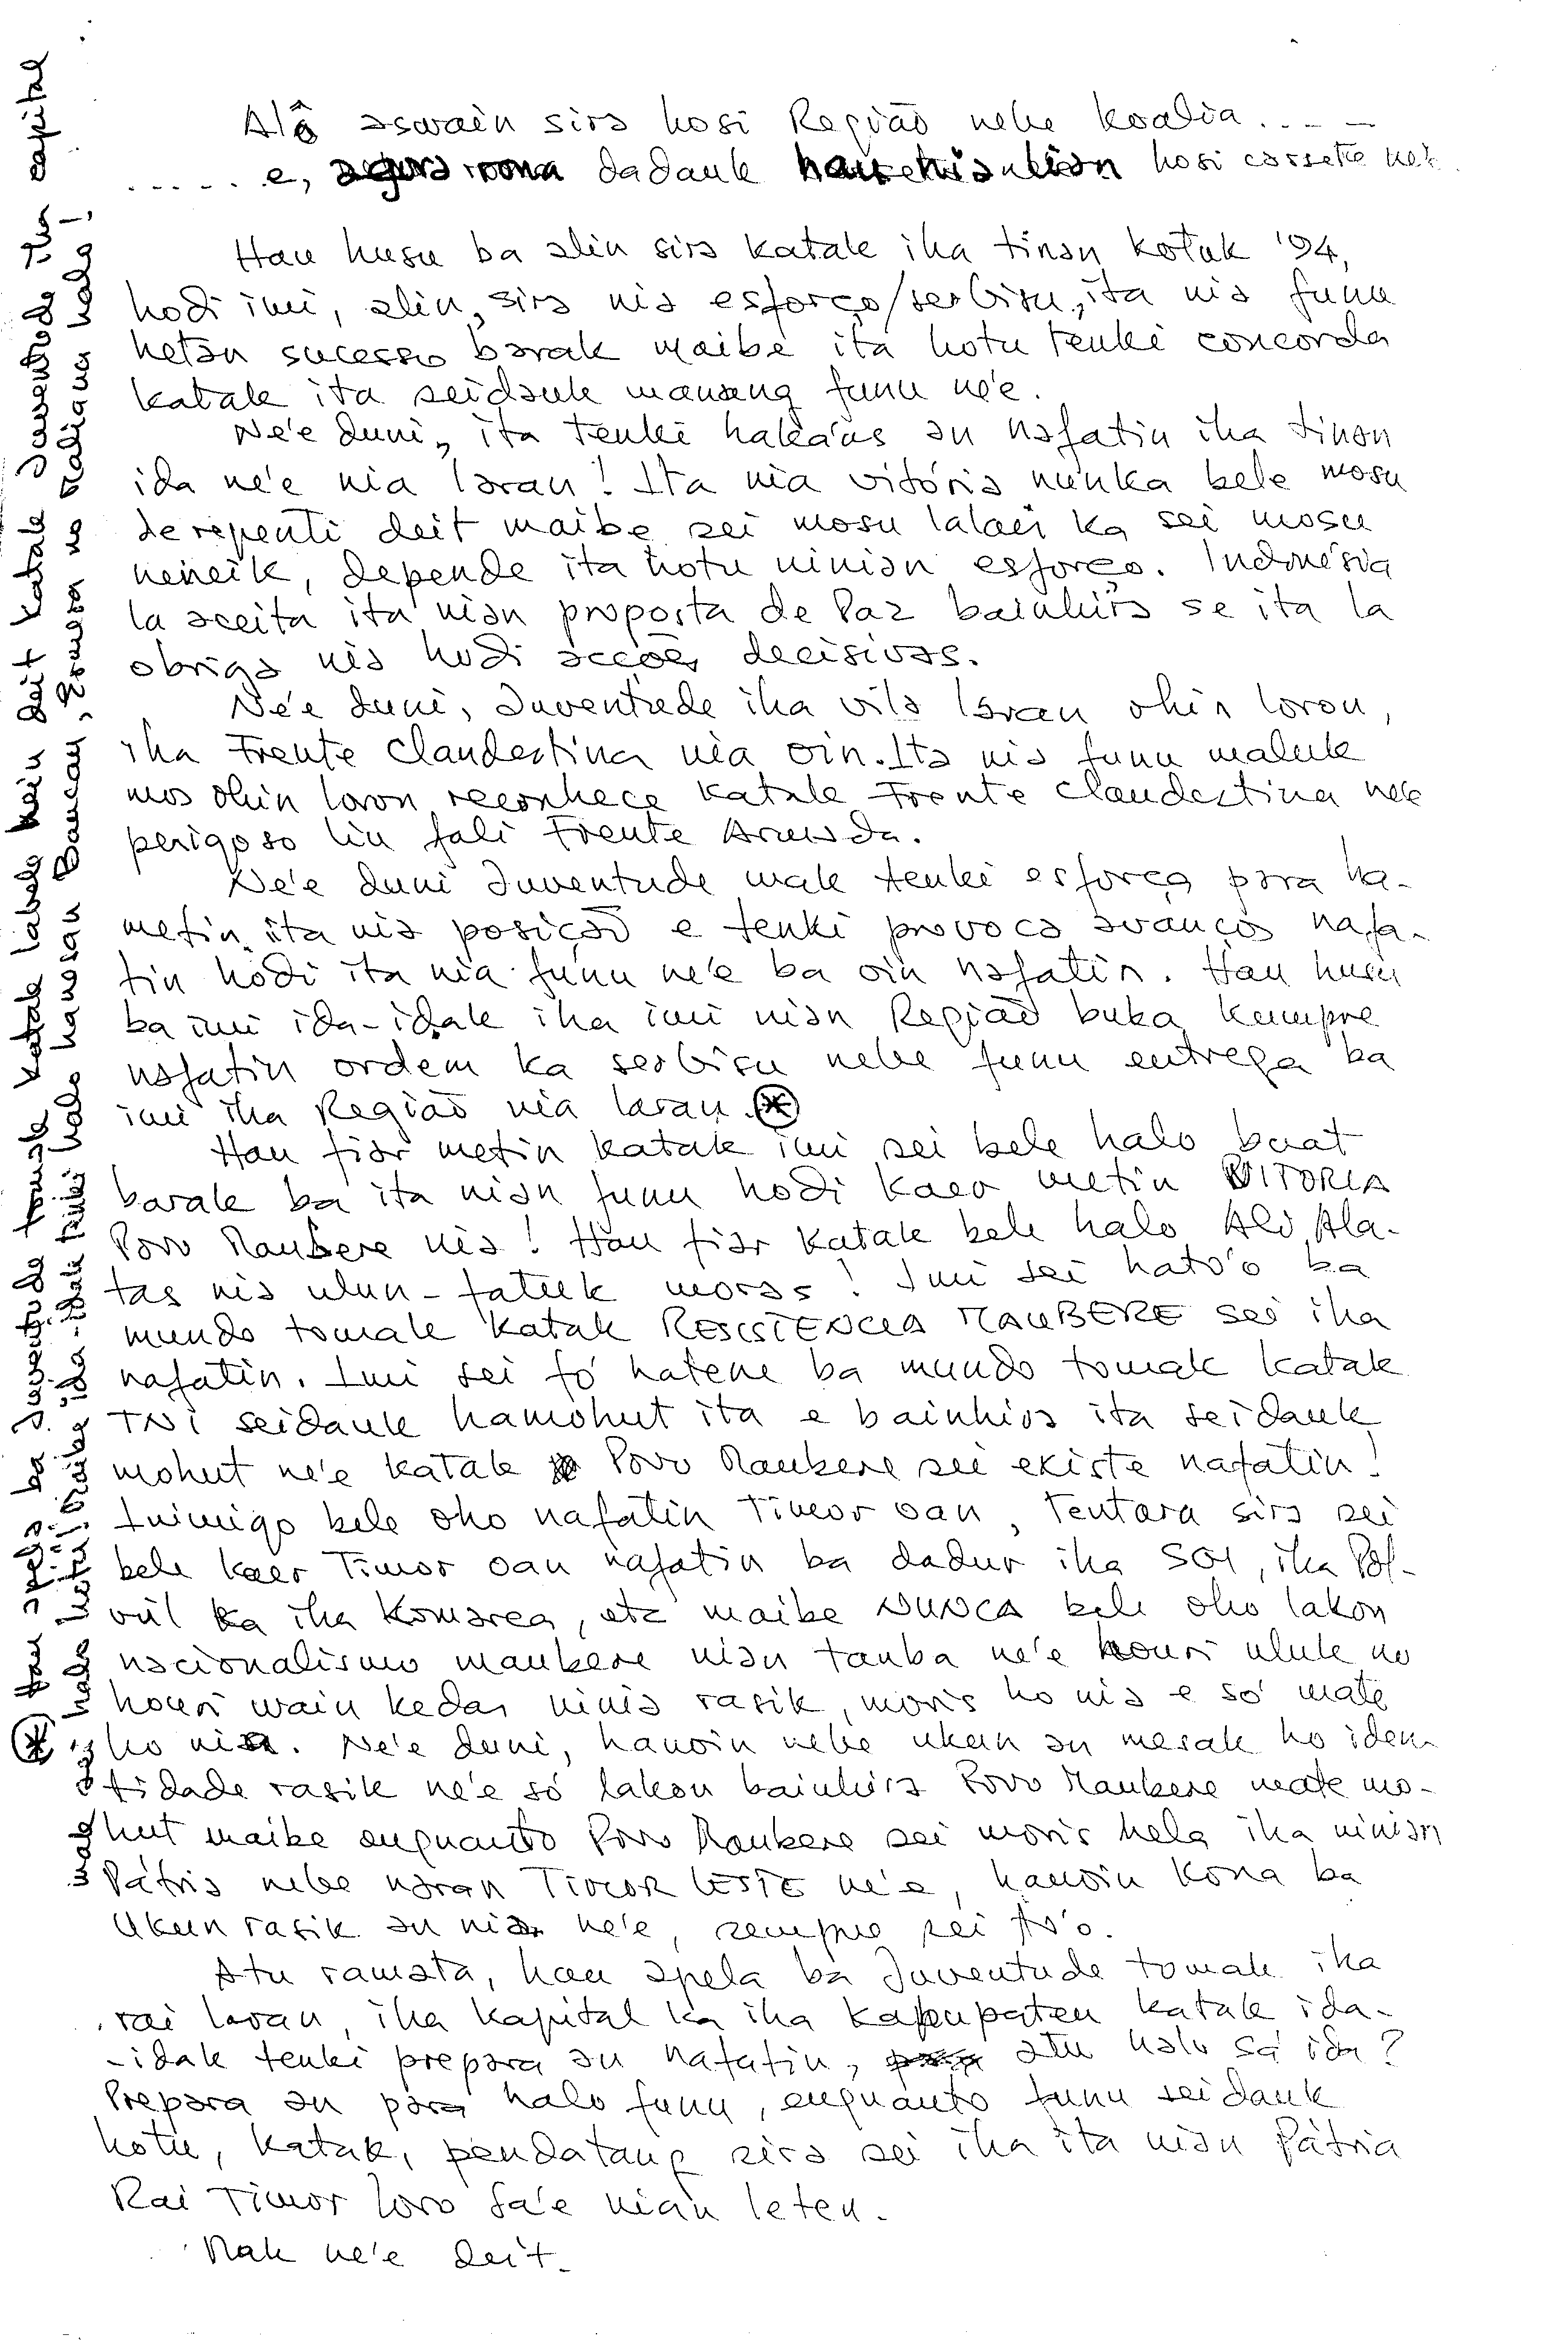 Alô aswain sira hosi Região nebe koalia.....
...... e, agora rona dadauk hau nia lian hosi cassete ne'e
Hau husu ba alin sira katak iha tinan kotuk '94,
hodi imi, alin sira nia esforço/serbisu, ita nia funu
hetan sucesso barak maibe ita hotu tenki concorda
katak ita seidauk manang funu ne'e.
Ne'e duni, ita tenki haka'as an nafatin iha tinan
ida ne'e nia laran! Ita nia vitória nunka bele mosu
derepenti deit maibe sei mosu lalais ka sei mosu
neineik, depende ita hotu ninian esforço. Indonésia
la aceita ita nian proposta de Paz bainhira se ita la
obriga nia hodi acções decisivas.
Ne'e duni, Juventude iha vila laran ohin loron,
iha Frente Clandestina nia oin. Ita nia funu maluk
mos ohin loron reconhece katak Frente Clandestina ne'e
perigoso liu fali Frente Armada.
Ne'e duni Juventude mak tenki esforça para ha-
metin ita nia posição e tenki provoca avanços nafa-
tin hodi ita nia funu ne'e ba oin nafatin. Hau husu
ba imi ida-idak iha imi nian Região buka kumpre
nafatin ordem ka serbisu nebe funu entrega ba
imi iha Região nia laran. (*)
Hau fiar metin katak imi sei bele halo buat
barak ba ita nian funu hodi kaer metin VITORIA
Povo Maubere nia! Hau fiar katak bele halo Ali Ala-
tas nia ulun-fatuk moras! Imi sei hato'o ba
mundo tomak katak RESISTENCIA MAUBERE sei iha
nafatin. Imi sei fó hatene ba mundo tomak katak
TNI seidauk hamohut ita e bainhira ita seidauk
mohut ne'e katak Povo Maubere sei existe nafatin!
Inimigo bele oho nafatin Timor oan, tentara sira sei
bele kaer Timor oan nafatin ba dadur iha SGI, iha Pol-
wil ka iha Komarca, etc maibe NUNCA bele oho lakon
nacionalismo maubere nian tanba ne'e houri uluk no
houri wain kedas ninia rasik, moris ho nia e só mate
ho nia. Ne'e duni, hanoin nebe ukun an mesak ho iden-
tidade rasik ne'e só lakon bainhira Povo Maubere mate mo-
hut maibe enquanto Povo Maubere sei moris hela iha ninian
Pátria nebe naran TIMOR LESTE ne'e, hanoin kona ba
Ukun rasik an nian ne'e, sempre sei to'o.
Atu ramata, hau apela ba Juventude tomak iha
rai laran, iha kapital ka iha kabupaten katak ida-
-idak tenki prepara an nafatin, atu halo sá ida?
Prepara an para halo funu, enquanto funu seidauk
hotu, katak, pendatang sira sei iha ita nian Pátria
Rai Timor Loro Sa'e nian leten.
Mak ne'e deit.
(*) Hau apela ba Juventude tomak katak labele hein deit katak Juventude iha capital
mak halo hotu! ida-idak tenki halo hanesan Baucau, Ermera no Maliana halo!